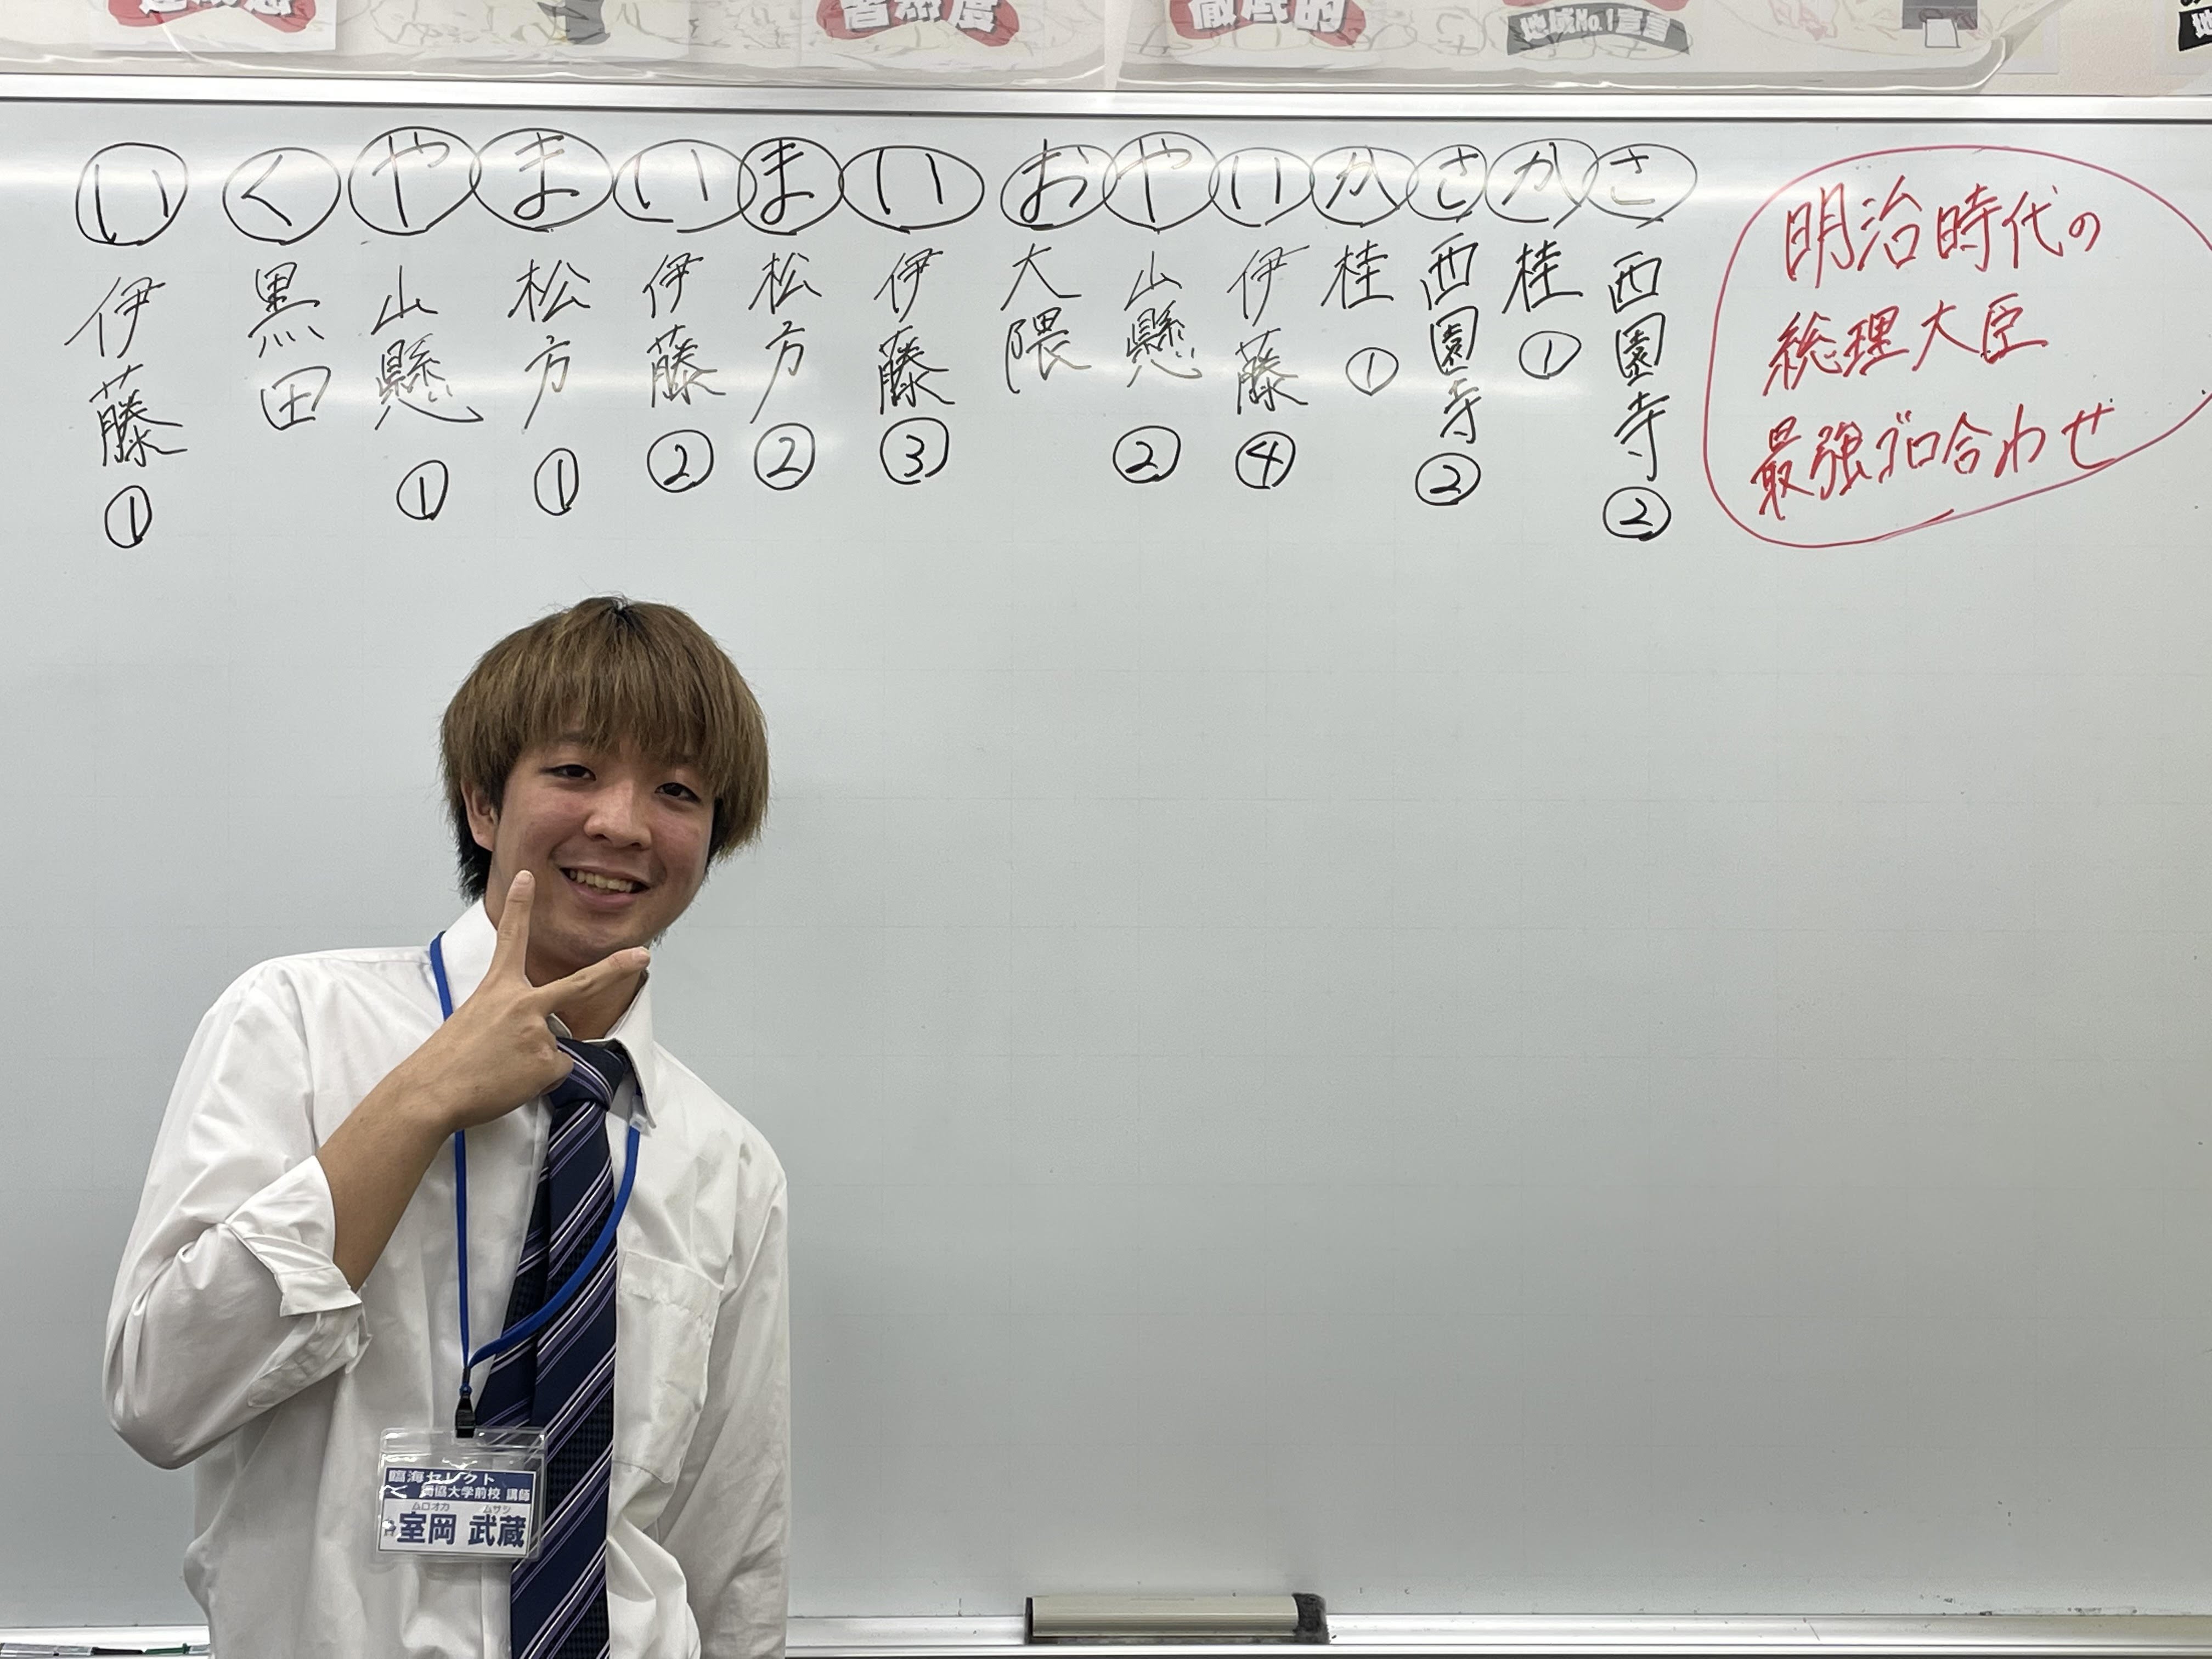 着熱度
徹底的
地域No.1宣言
い く や ま い ま い お や い か さ か さ
伊藤①
黒田
山懸①
松方①
伊藤②
松方②
伊藤③
大隈
山懸②
伊藤④
桂①
西園寺②
桂①
西園寺②
明治時代の
総理大臣
最強ゴロ合わせ
臨海セレクト
協大学前校 講師
ムロオカ ムサシ
室岡 武蔵